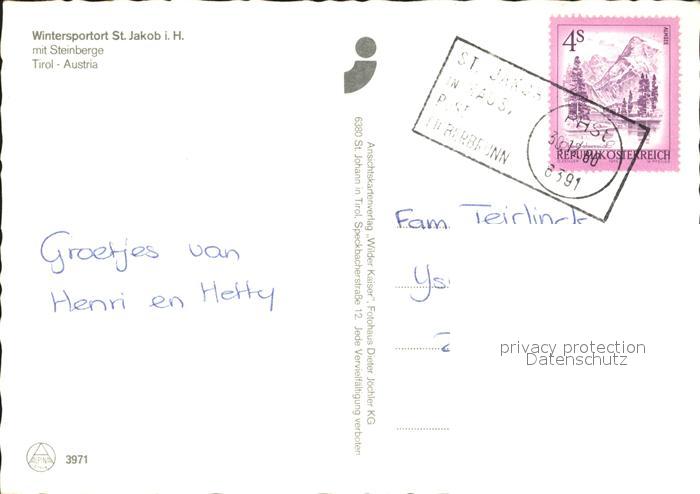 Wintersportort St. Jakob i. H.
mit Steinberge
Tirol - Austria
Groetjes van
Henri en Hetty
ALPINA
3971
Ansichtskartenverlag „Wilder Kaiser", Fotohaus Dieter Jöchler KG
6380 St. Johann in Tirol, Speckbacherstraße 12. Jede Vervielfältigung verboten
4S
ALMSEE
REPUBLIK ÖSTERREICH
ST. JAKOB
IN HAUS,
POST
FIEBERBRUNN
30.12.80
6391
Fam. Teirlinck
Ys
privacy protection
Datenschutz